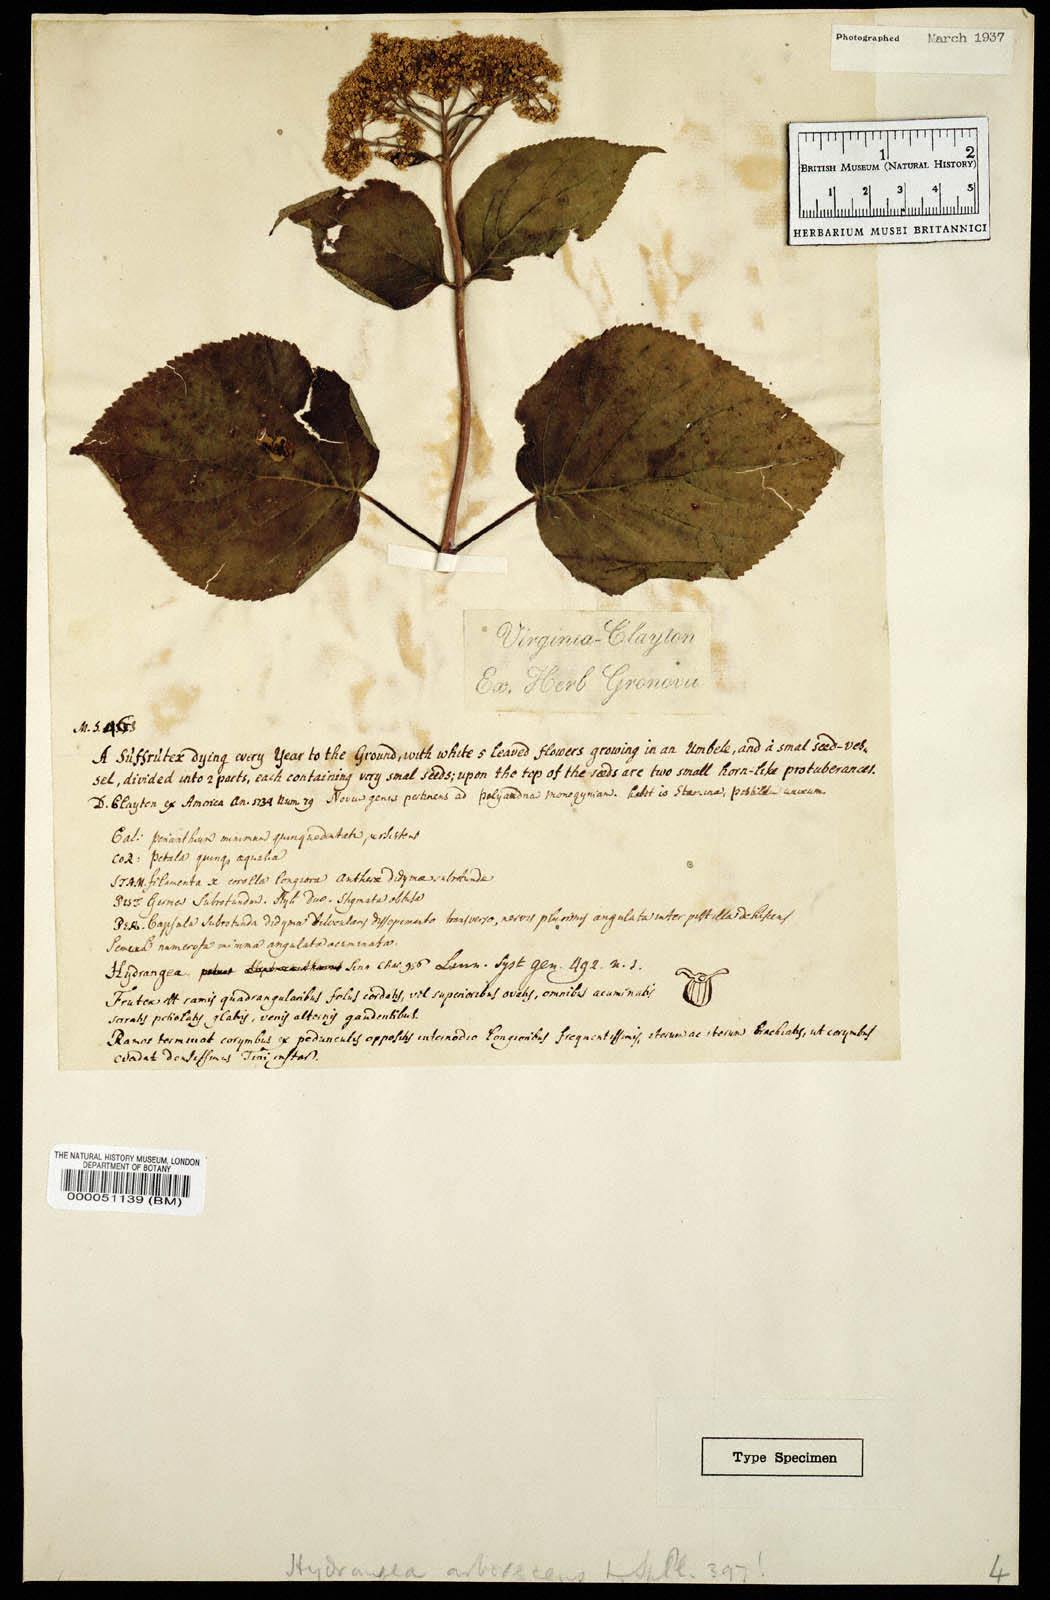 Photographed March 1937
1 2
BRITISH MUSEUM (NATURAL HISTORY)
1 2 3 4 5
HERBARIUM MUSEI BRITANNICI
Virginia - Clayton
Ex. Herb Gronovii
M. S.
A Suffrutex dying every Year to the Ground, with white 5 leaved flowers growing in an Umbele, and a smal seed-ves-
sel, divided into 2 parts, each containing very smal seeds; upon the top of the seeds are two small horn-like protuberances.
D. Clayton ex America An. 1734 Num. 79 Novum genus pertinens ad polyandria monogyniam. habet 10 Stamina,
Cal: perianthium minimum persistens
COR: petala quinq aequalia
STAM. filamenta x corolla longiora Antherae didymae subrotundae
PIST. Germen Subrotundum. Styli Duo. Stigmata obtusa
PER. Capsula Subrotunda didyma bilocularis dissepimento transverso, nervis plurimis angulata inter pistilla dehiscens
Semina numerosa minima angulata acuminata.
Hydrangea Linn. Syst gen. 492. n. 1.
Frutex ramis quadrangularibus folus cordatis, vel superioribus ovatis, omnibus acuminatis
serratis petiolatis glabris, venis alternis gaudentibus.
Ramos terminat corymbus ex pedunculis oppositis internodio longioribus frequentissimis, iterum ac iterum brachiatis, ut corymbus
evadat densissimus Tini instar.
THE NATURAL HISTORY MUSEUM, LONDON
DEPARTMENT OF BOTANY
000051139 (BM)
Type Specimen
Hydrangea arborescens L. Sp. Pl. 397!
4